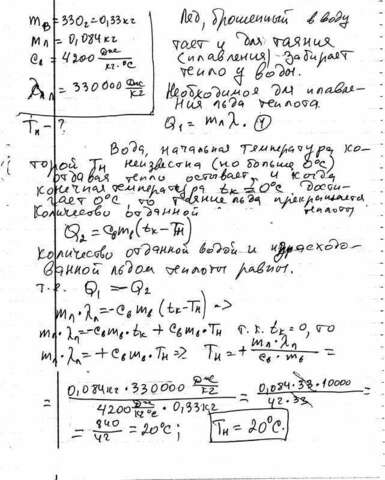 mв = 330г = 0,33кг
mл = 0,084кг
cв = 4200 Дж/кг·°C
λл = 330000 Дж/кг
Tн - ?
Лёд, брошенный в воду
тает и для таяния
(плавления) забирает
тепло у воды.
Необходимое для плавле-
ния льда теплота
Q₁ = mлλ. (1)
Вода, начальная температура ко-
торой Tн неизвестна (но больше 0°C)
отдавая тепло остывает, и когда
конечная температура tк = 0°C дости-
гает 0°C, то таяние льда прекращается.
Количество отданной теплоты
Q₂ = cвmв(tк - Tн)
Количество отданной водой и израсходо-
ванной льдом теплоты равны.
т.е. Q₁ = Q₂
mл·λл = -cвmв(tк - Tн) =>
mл·λл = -cвmв·tк + cвmв·Tн т.к. tк = 0, то
mл·λл = + cвmв·Tн => Tн = + mл·λл / cв·mв =
= 0,084кг · 330000 Дж/кг / 4200 Дж/кг°C · 0,33кг = 0,084·33·10000 / 42·33 =
= 840/42 = 20°C; Tн = 20°C.